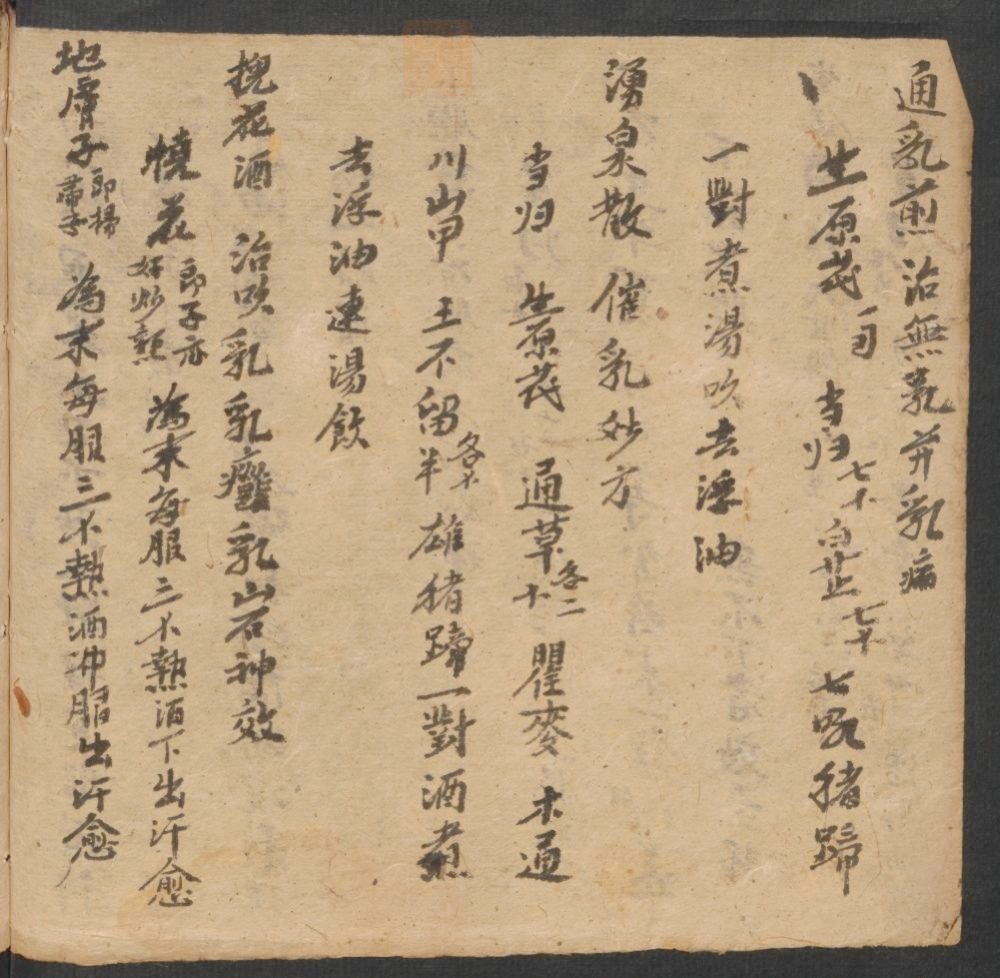 通乳煎治無乳并乳病
生原芪 当归七不白芷七不七吼猪蹄
一對煮湯吹去浮油
湧泉散 催乳妙方
当归 生原芪 通草各二十瞿麥 木通
川山甲 王不留半各不雄猪蹄一對酒煮
去浮油連湯飲
槐花酒 治吹乳乳癰乳岩神效
槐花即子亦好炒熱為末每服三不熱酒下出汗愈
地膚子即掃帚子 為末每服三不熱酒冲服出汗愈